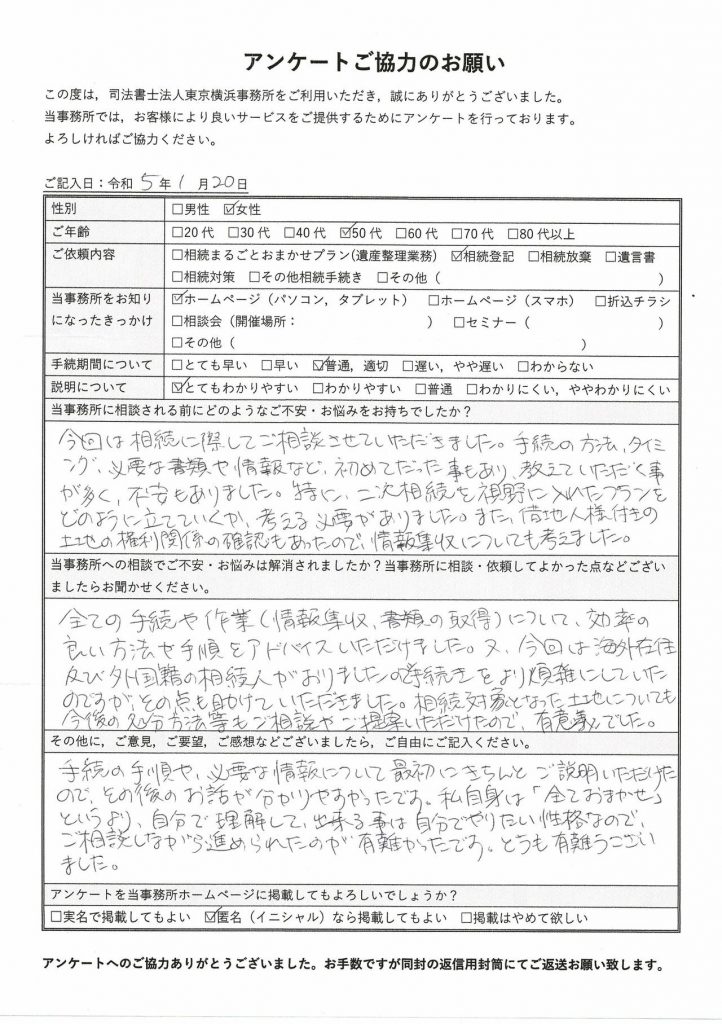 アンケートご協力のお願い
この度は，司法書士法人東京横浜事務所をご利用いただき，誠にありがとうございました。
当事務所では，お客様により良いサービスをご提供するためにアンケートを行っております。
よろしければご協力ください。
ご記入日：令和 5 年 1 月 20 日
性別 □男性 ☑女性
ご年齢 □20 代 □30 代 □40 代 ☑50 代 □60 代 □70 代 □80 代以上
ご依頼内容 □相続まるごとおまかせプラン(遺産整理業務) ☑相続登記 □相続放棄 □遺言書
□相続対策 □その他相続手続き □その他（ ）
当事務所をお知り ☑ホームページ（パソコン，タブレット） □ホームページ（スマホ） □折込チラシ
になったきっかけ □相談会（開催場所： ） □セミナー（ ）
□その他（ ）
手続期間について □とても早い □早い ☑普通，適切 □遅い，やや遅い □わからない
説明について ☑とてもわかりやすい □わかりやすい □普通 □わかりにくい，ややわかりにくい
当事務所に相談される前にどのようなご不安・お悩みをお持ちでしたか？
今回は相続に際してご相談させていただきました。手続の方法、タイミ
ング、必要な書類や情報など、初めてだった事もあり、教えていただく事
が多く、不安もありました。特に、二次相続を視野に入れたプランを
どのように立てていくか、考える必要がありました。また、借地人様付きの
土地の権利関係の確認もあったので、情報集収についても考えました。
当事務所への相談でご不安・お悩みは解消されましたか？当事務所に相談・依頼してよかった点などござい
ましたらお聞かせください。
全ての手続や作業（情報集収、書類の取得）について、効率の
良い方法や手順をアドバイスいただけました。又、今回は海外在住
及び外国籍の相続人がおりましたの手続きをより煩雑にしていた
のですが、その点も助けていただきました。相続対象となった土地についても
今後の処分方法等もご相談やご提案いただけたので、有意義でした。
その他に，ご意見，ご要望，ご感想などございましたら，ご自由にご記入ください。
手続の手順や、必要な情報について最初にきちんとご説明いただけた
ので、その後のお話が分かりやすかったです。私自身は「全ておまかせ」
というより、自分で理解して、出来る事は自分でやりたい性格なので、
ご相談しながら進められたのが有難かったです。どうも有難うござい
ました。
アンケートを当事務所ホームページに掲載してもよろしいでしょうか？
□実名で掲載してもよい ☑匿名（イニシャル）なら掲載してもよい □掲載はやめて欲しい
アンケートへのご協力ありがとうございました。お手数ですが同封の返信用封筒にてご返送お願い致します。